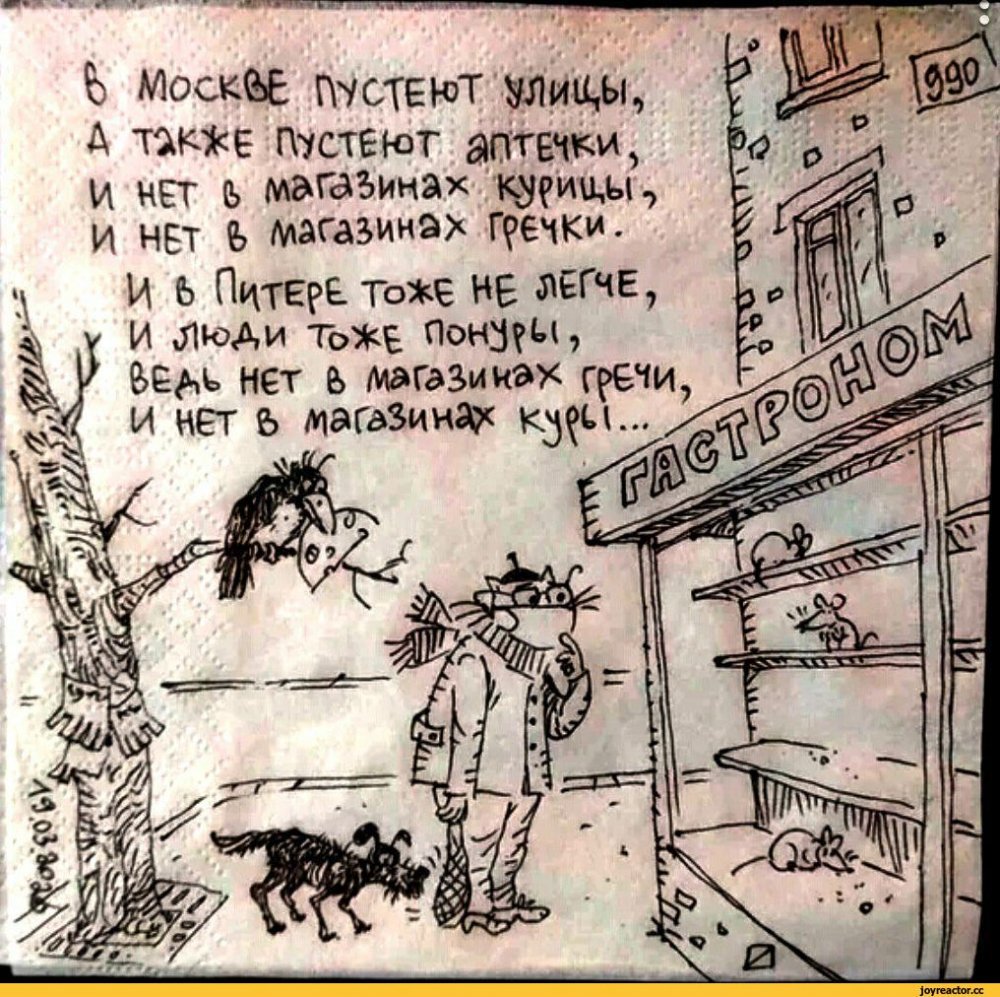 В МОСКВЕ ПУСТЕЮТ УЛИЦЫ,
А ТАКЖЕ ПУСТЕЮТ АПТЕЧКИ,
И НЕТ В МАГАЗИНАХ КУРИЦЫ,
И НЕТ В МАГАЗИНАХ ГРЕЧКИ.
И В ПИТЕРЕ ТОЖЕ НЕ ЛЕГЧЕ,
И ЛЮДИ ТОЖЕ ПОНУРЫ,
ВЕДЬ НЕТ В МАГАЗИНАХ ГРЕЧИ,
И НЕТ В МАГАЗИНАХ КУРЫ...
990
ГАСТРОНОМ
19.03.2020
joyreactor.cc